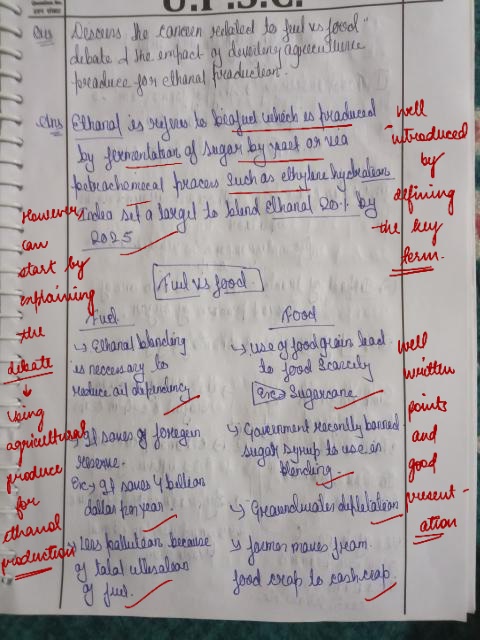 U.P.S.C.
Question No.
Ques Discuss the concern related to fuel vs food
debate & the impact of diverting agriculture
produce for ethanal production.
Ans Ethanal is refers to biofuel which is produced
by fermentation of sugar by yeast or via
petrochemical process such as ethylene hydration
India set a target to blend ethanal 20% by
2025
Fuel vs food
Fuel
→ Ethanal blending
is necessary to
reduce oil dependency
→ It saves of foregin
reserve.
Ex:→ It saves 4 billion
dollar per year.
→ Less pollution because
of total utilisation
of fuel.
Food
→ use of foodgrain lead
to food Scarcity
Ex:→ Sugarcane
→ Government recently banned
sugar syrup to use in
blending.
→ Groundwater depletation
→ farmer moves from
food crop to cash crop.
However
can
start by
explaining
the
debate
↓
Using
agricultural
produce
for
ethanol
production
well
introduced
by
defining
the key
term.
well
written
points
and
good
present-
ation